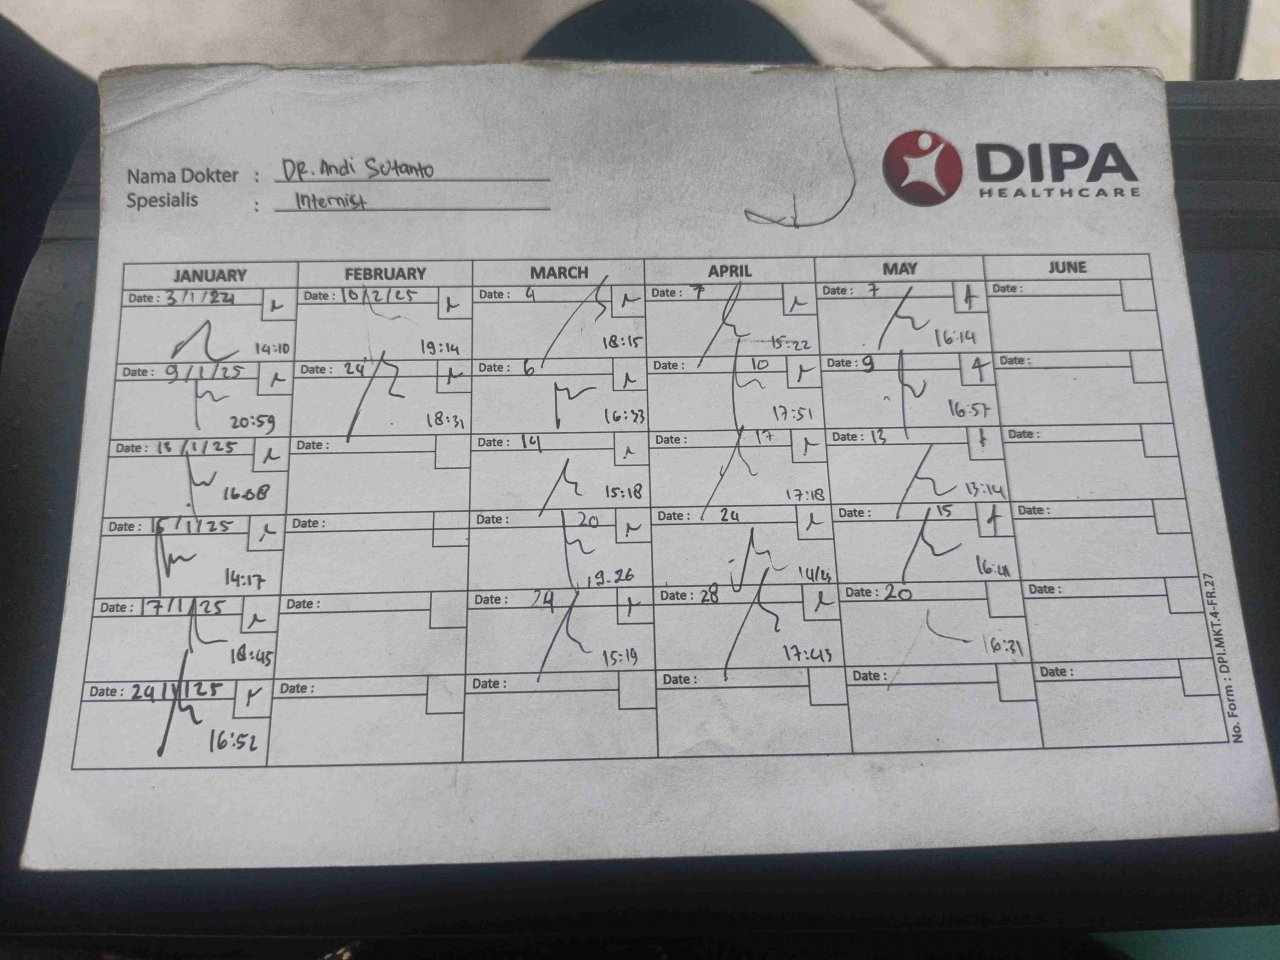 Nama Dokter : DR. Andi Sutanto
Spesialis : Internist
DIPA
HEALTHCARE
JANUARY FEBRUARY MARCH APRIL MAY JUNE
Date : 3/1/24 Date : 10/2/25 Date : 4 Date : 7 Date : 7 Date :
14:10 19:14 18:15 15:22 16:14
Date : 9/1/25 Date : 24 Date : 6 Date : 10 Date : 9 Date :
20:59 18:31 16:33 17:51 16:57
Date : 13/1/25 Date : Date : 14 Date : 17 Date : 13 Date :
16:08 15:18 17:18 13:14
Date : 15/1/25 Date : Date : 20 Date : 24 Date : 15 Date :
14:17 19.26
Date : 17/1/25 Date : Date : 24 Date : 28 Date : 20 Date :
18:45 15:19 17:43 16:31
Date : 24/1/25 Date : Date : Date : Date : Date :
16:52
No. Form : DPI.MKT.4-FR.27